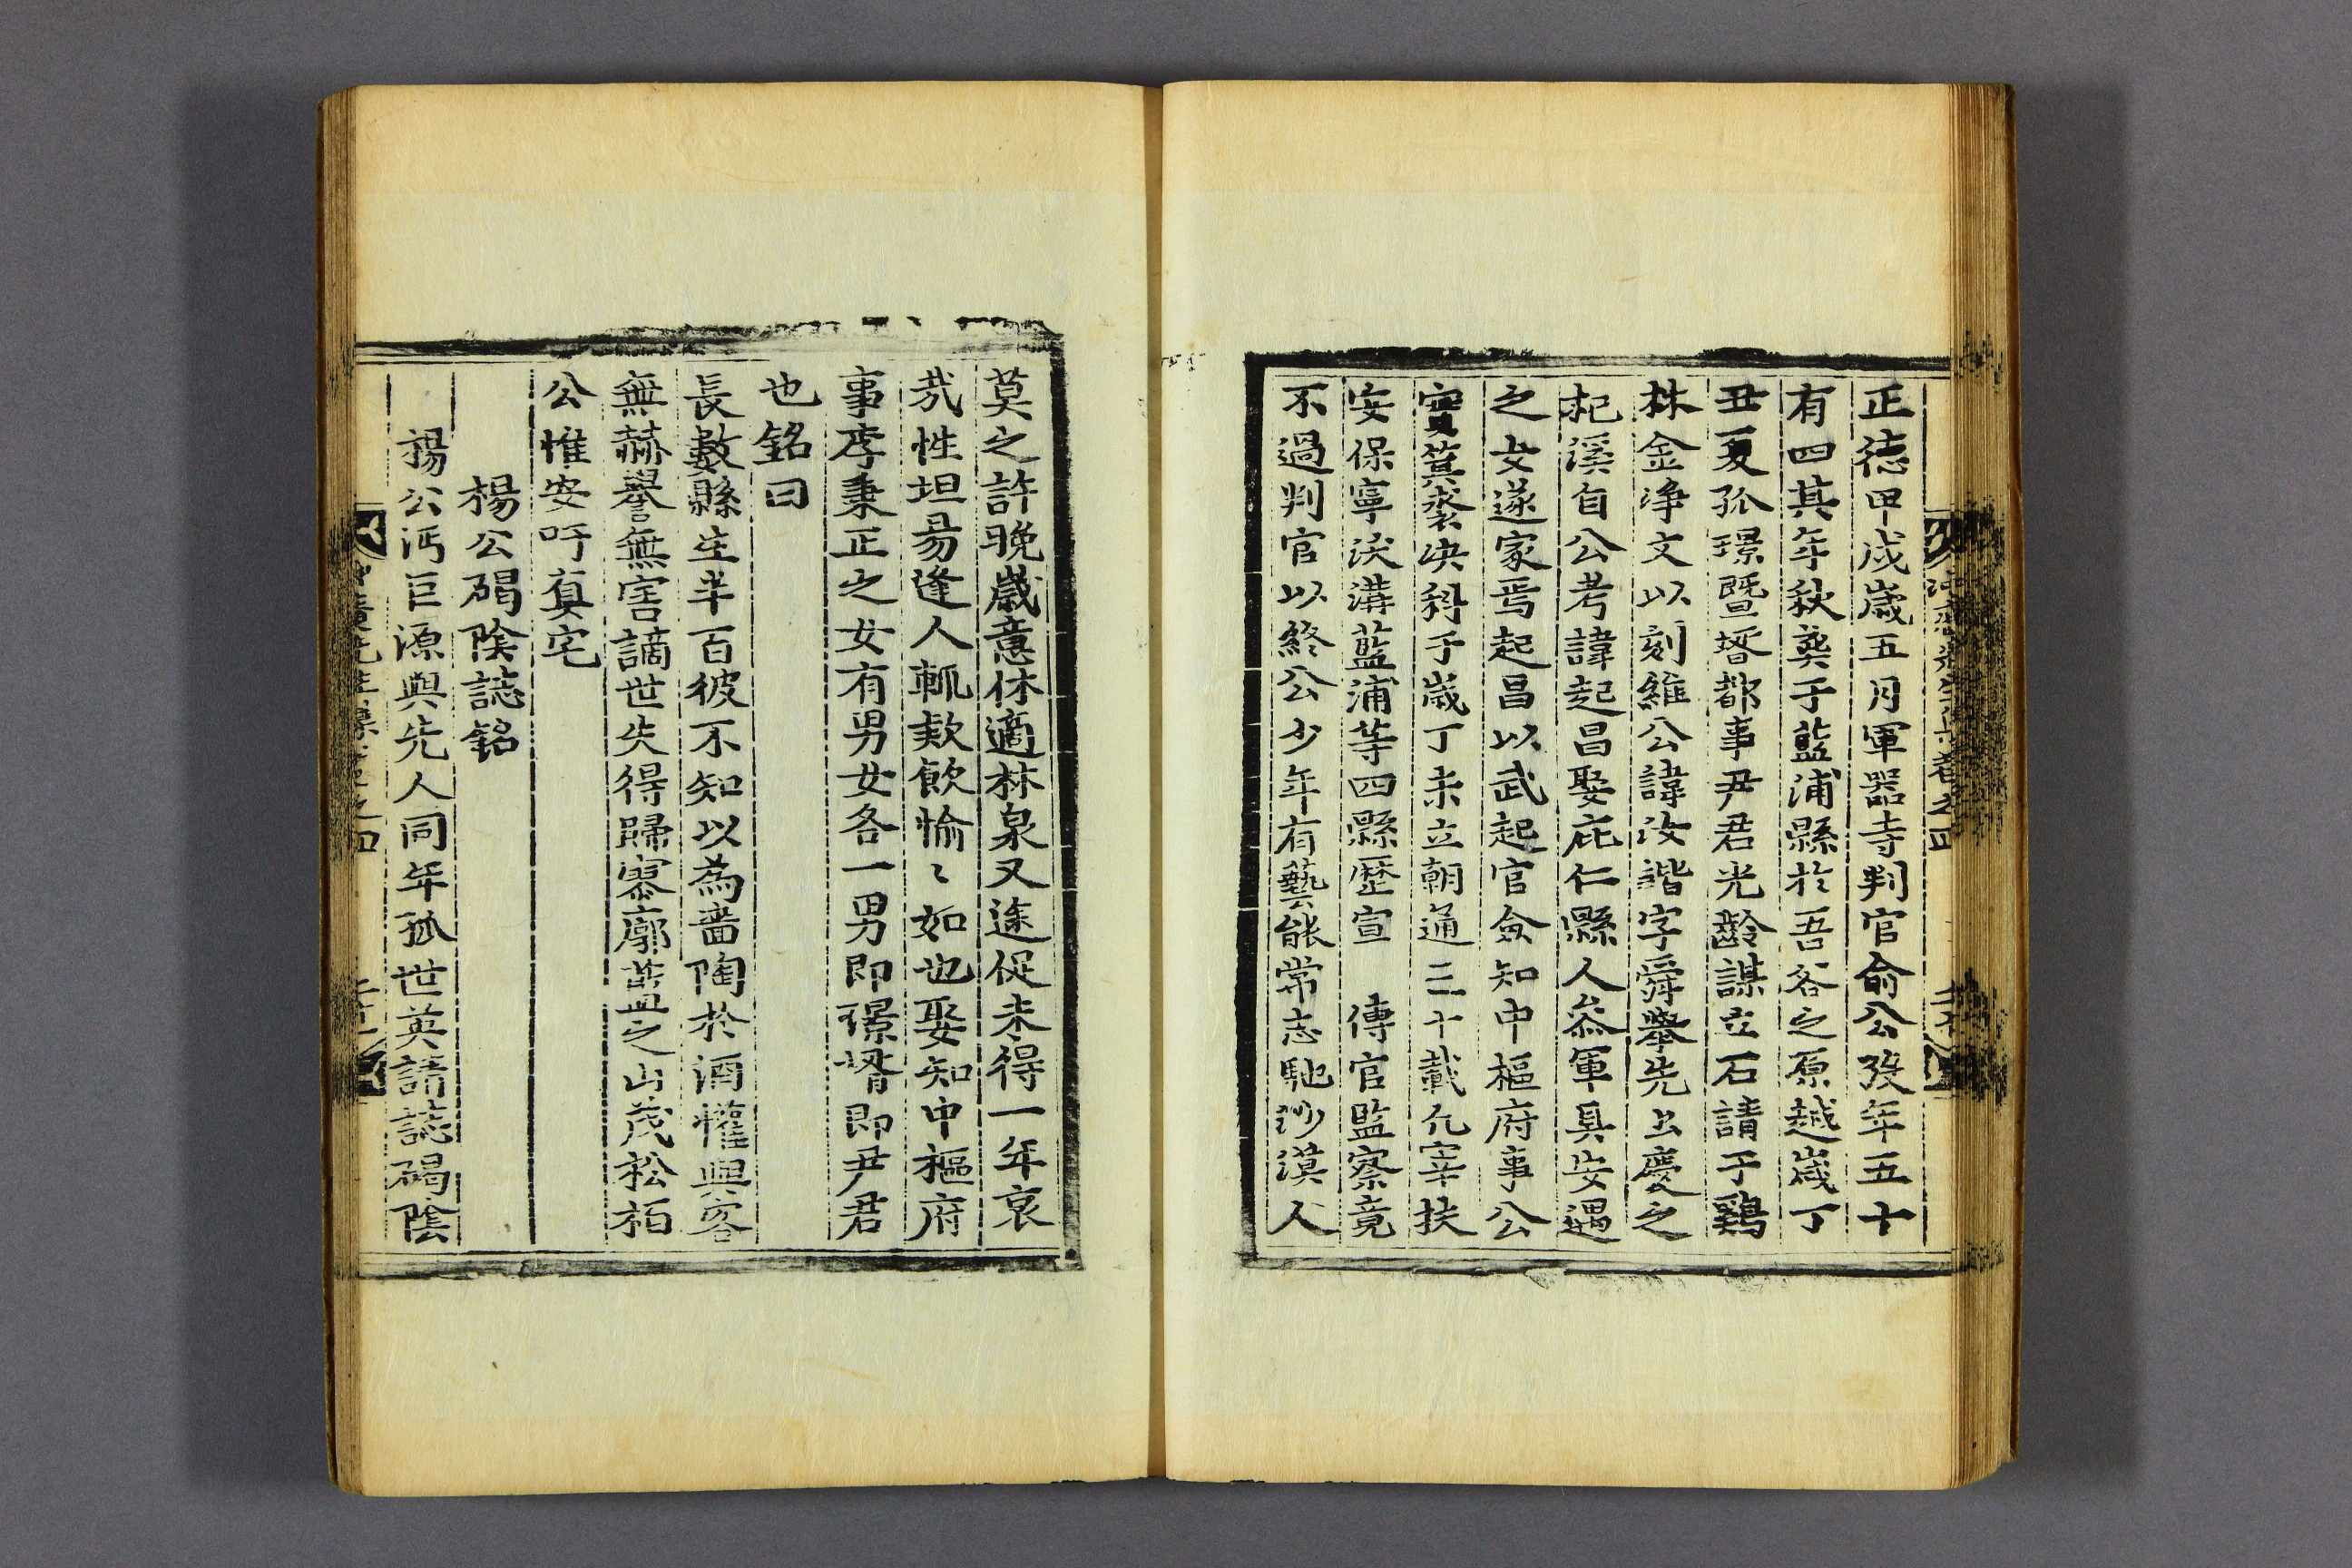 正德甲戌歲五月軍器寺判官俞公歿年五十
有四其年秋葬于藍浦縣於吾各之原越歲丁
丑夏孤璟曁壻都事尹君光齡謀立石請于鷄
林金淨文以刻維公諱汝諧字舜擧先出慶之
杞溪自公考諱起昌娶庇仁縣人叅軍具安遇
之女遂家焉起昌以武起官僉知中樞府事公
實箕裘决科于歲丁未立朝通三十載凡宰扶
安保寧洪溝藍浦等四縣歷宣 傳官監察竟
不過判官以終公少年有藝能常志馳沙漠人
莫之許晚歲意休適林泉又遽促未得一年哀
㢤性坦易逢人輒欵飮愉〻如也娶知中樞府
事李秉正之女有男女各一男即璟壻即尹君
也銘曰
長數縣生半百彼不知以爲嗇陶於酒懽與客
無赫譽無害謫世失得歸寥廓藍之山茂松栢
公惟安吁眞宅
楊公碣陰誌銘
楊公沔巨源與先人同年孤世英請誌碣陰